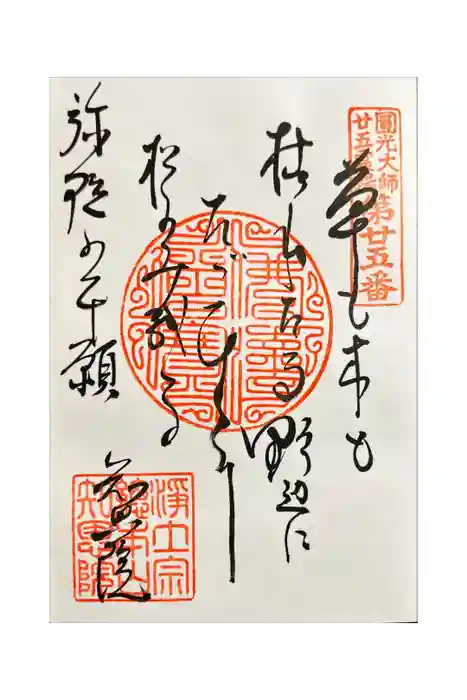 圓光大師
廿五霊場
第廿五番
草も木も
枯れたる野辺に
たゞひとり
松のみ残る
弥陀の本願
浄土宗
總本山
知恩院